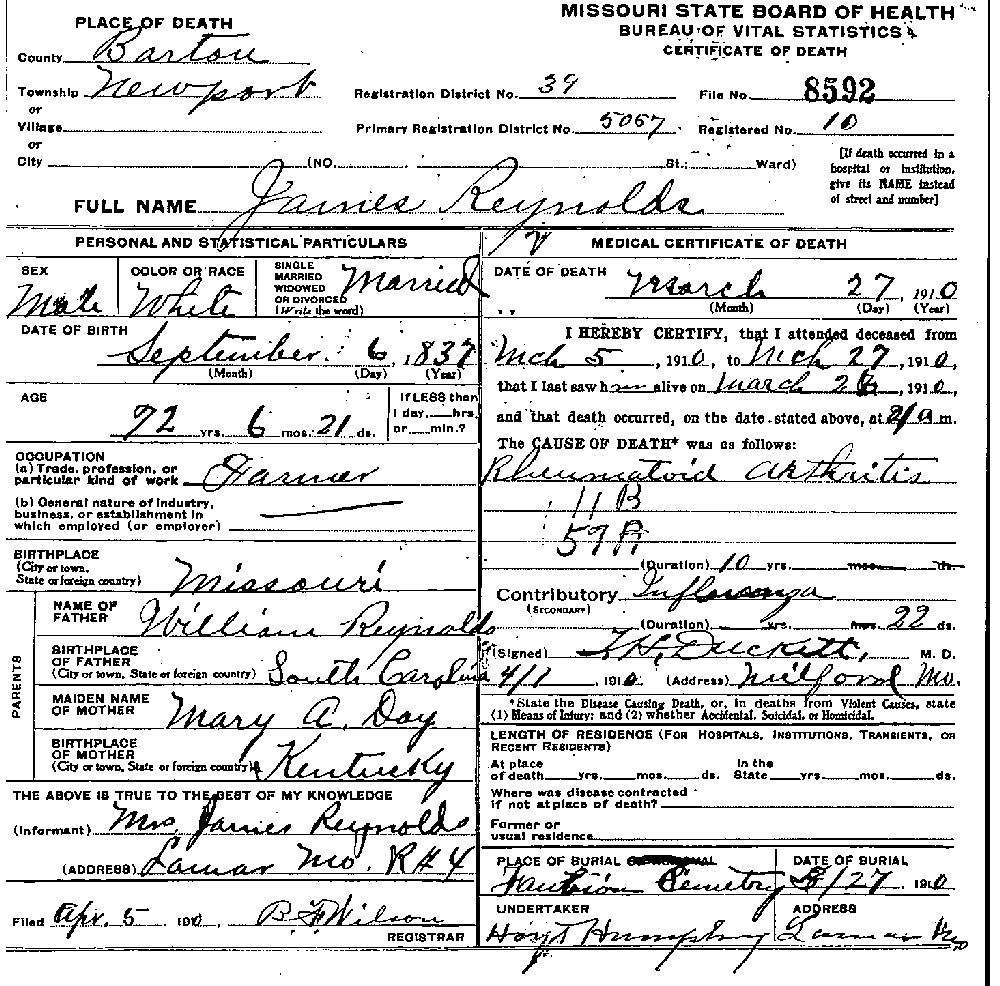 MISSOURI STATE BOARD OF HEALTH
BUREAU OF VITAL STATISTICS
CERTIFICATE OF DEATH
PLACE OF DEATH
County Barton
Township Newport
or
Village
or
City (NO. St.; Ward)
Registration District No. 39 File No. 8592
Primary Registration District No. 5067 Registered No. 10
[If death occurred in a
hospital or institution,
give its NAME instead
of street and number]
FULL NAME James Reynolds
PERSONAL AND STATISTICAL PARTICULARS
SEX
Male
COLOR OR RACE
White
SINGLE
MARRIED
WIDOWED
OR DIVORCED
(Write the word)
Married
DATE OF BIRTH
September 6, 1837
(Month) (Day) (Year)
AGE
72 yrs. 6 mos. 21 ds.
If LESS than
1 day,....hrs.
or....min.?
OCCUPATION
(a) Trade, profession, or
particular kind of work Farmer
(b) General nature of industry,
business, or establishment in
which employed (or employer)
BIRTHPLACE
(City or town,
State or foreign country) Missouri
PARENTS
NAME OF
FATHER William Reynolds
BIRTHPLACE
OF FATHER
(City or town, State or foreign country) South Carolina
MAIDEN NAME
OF MOTHER Mary A. Day
BIRTHPLACE
OF MOTHER
(City or town, State or foreign country) Kentucky
THE ABOVE IS TRUE TO THE BEST OF MY KNOWLEDGE
(Informant) Mrs. James Reynolds
(ADDRESS) Lamar Mo. R#4
Filed Apr. 5 1910 B F Wilson
REGISTRAR
MEDICAL CERTIFICATE OF DEATH
DATE OF DEATH
March 27, 1910
(Month) (Day) (Year)
I HEREBY CERTIFY, that I attended deceased from
Mch 5, 1910, to Mch 27, 1910,
that I last saw him alive on March 26, 1910,
and that death occurred, on the date stated above, at m.
The CAUSE OF DEATH* was as follows:
Rheumatoid Arthritis
11 B
57 A
(Duration) 10 yrs. mos. ds.
Contributory Influenza
(SECONDARY)
(Duration) yrs. mos. 22 ds.
(Signed) Duckett, M. D.
4/1 1910 (Address) Milford Mo.
*State the Disease Causing Death, or, in deaths from Violent Causes, state
(1) Means of Injury; and (2) whether Accidental, Suicidal, or Homicidal.
LENGTH OF RESIDENCE (FOR HOSPITALS, INSTITUTIONS, TRANSIENTS, OR
RECENT RESIDENTS)
At place
of death yrs. mos. ds.
In the
State yrs. mos. ds.
Where was disease contracted
if not at place of death?
Former or
usual residence
PLACE OF BURIAL
Faubion Cemetry
DATE OF BURIAL
3/27 1910
UNDERTAKER
Hoyt Humphry
ADDRESS
Lamar Mo